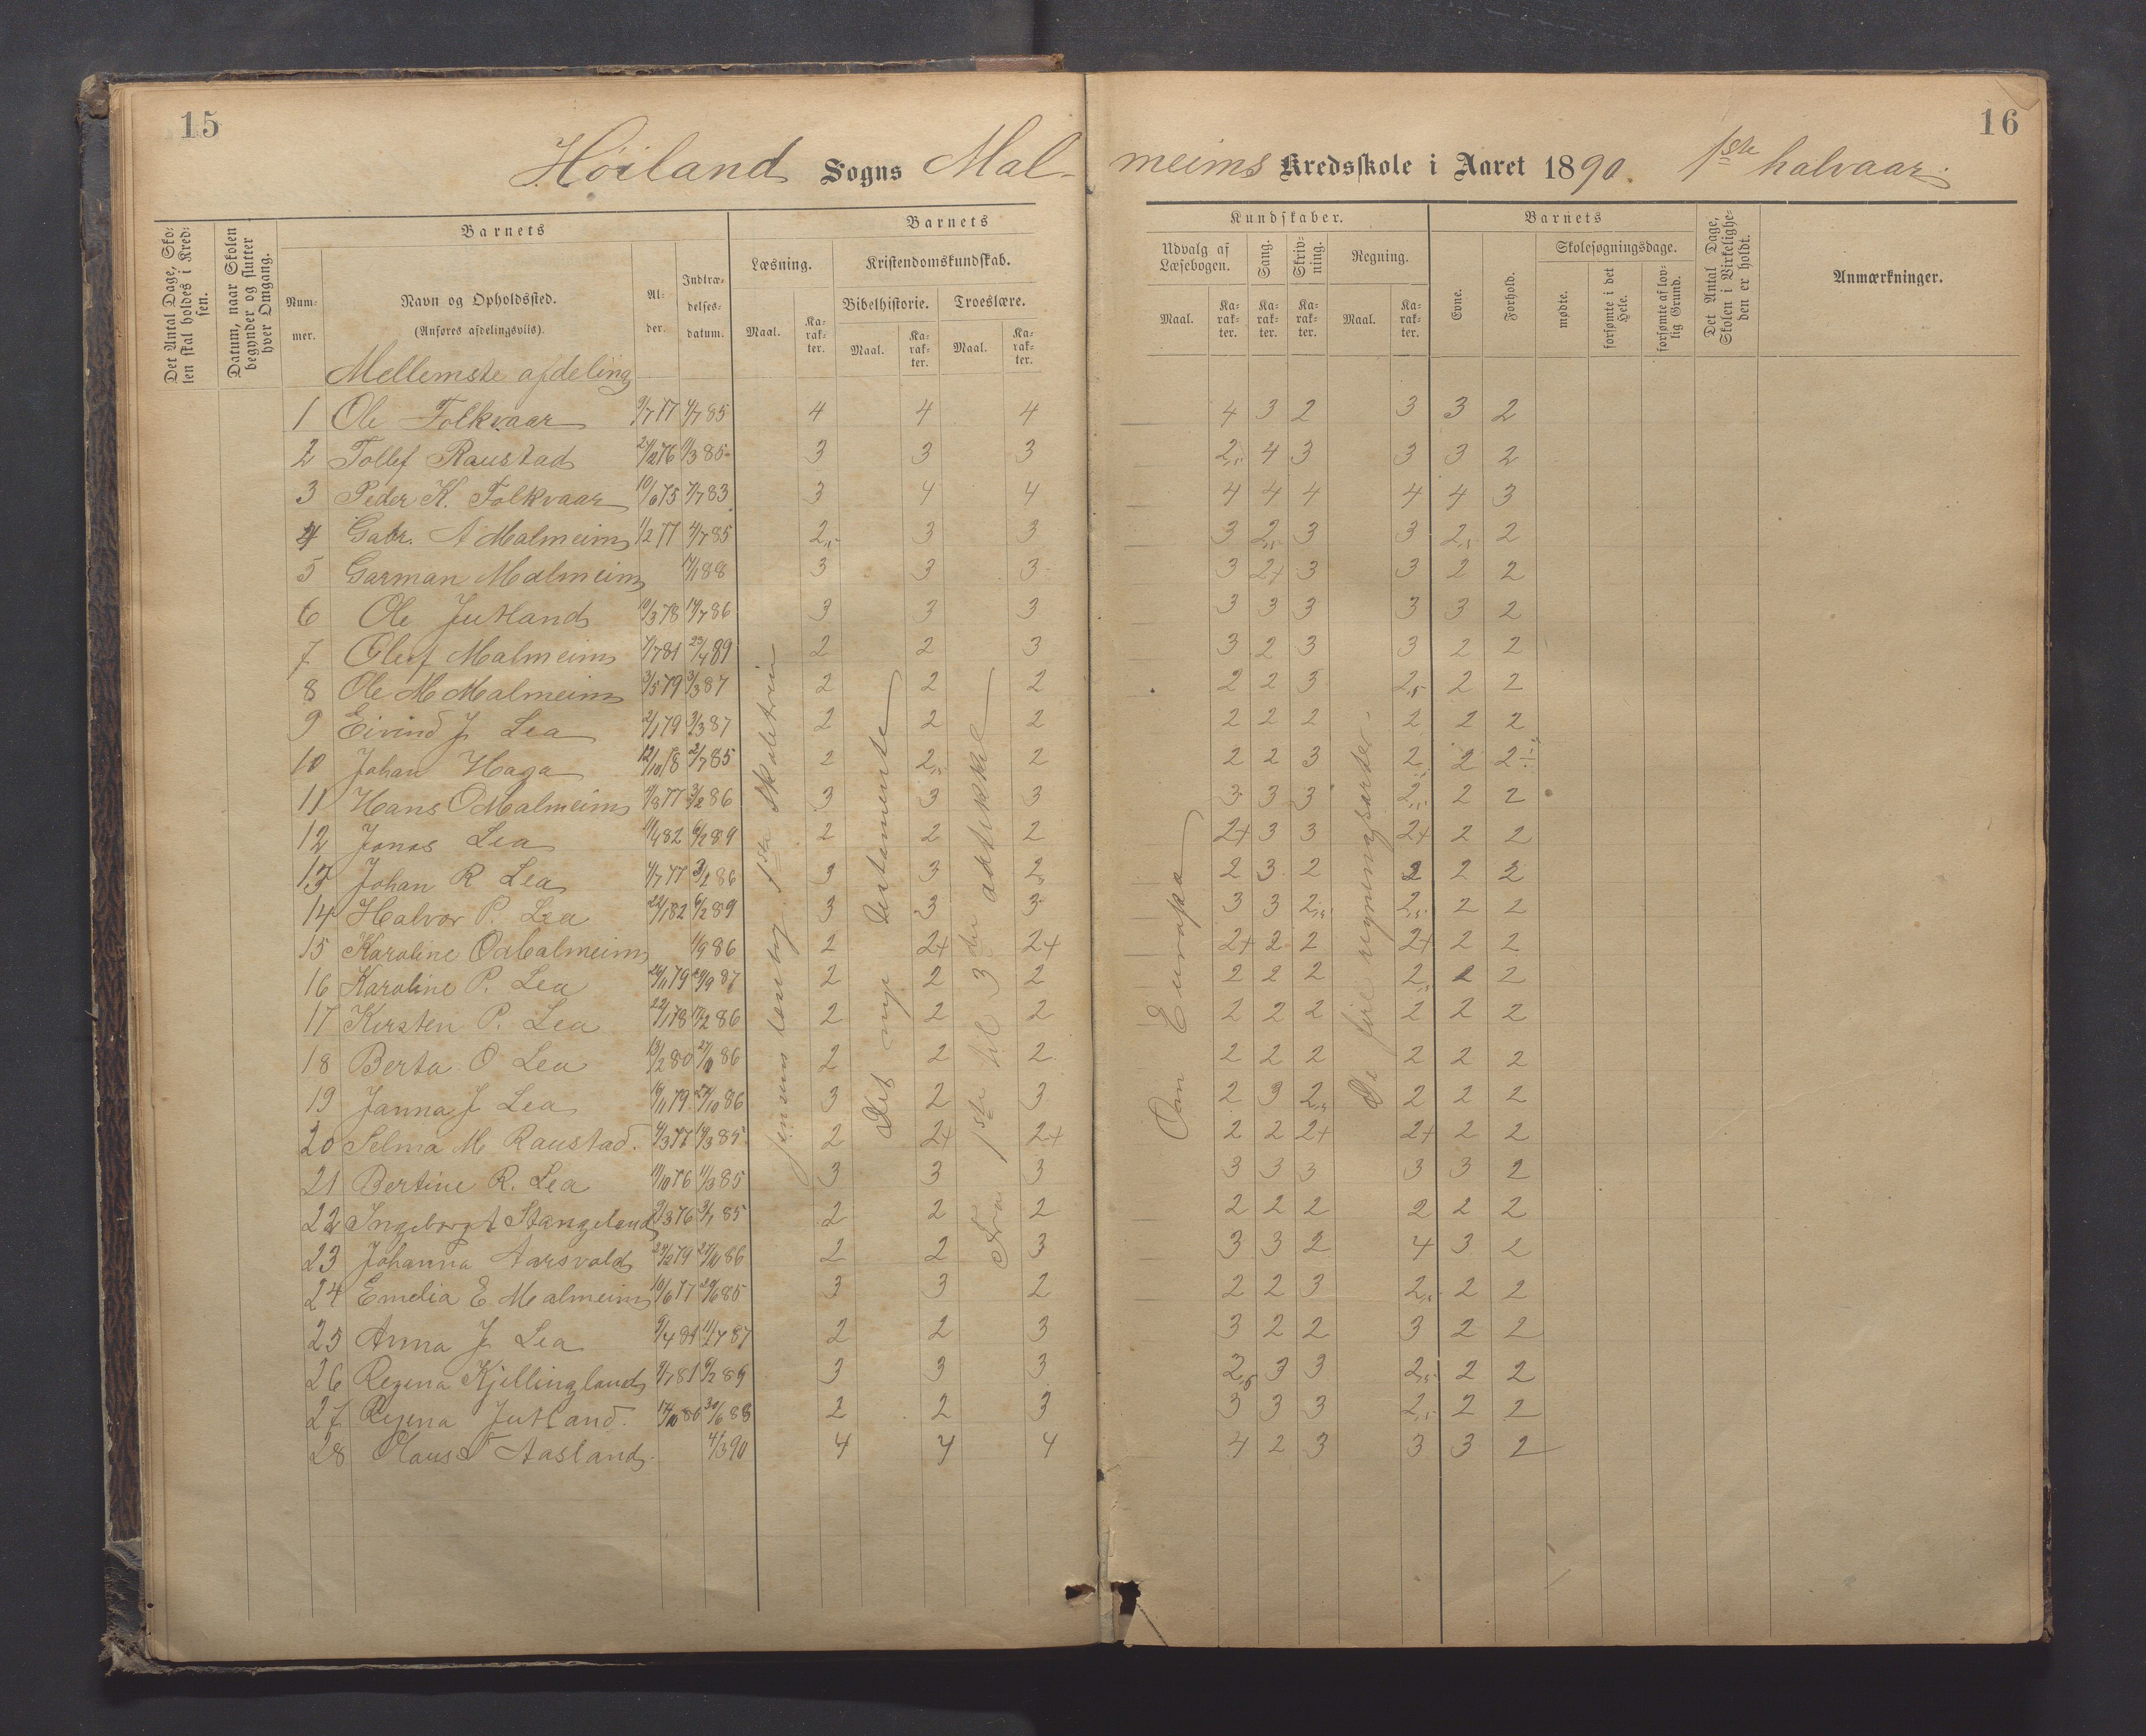 15
16
Höiland Sogns Malmeims Kredsskole i Aaret 1890. 1ste halvaar.
Det Antal Dage, Skolen skal holdes i Kredsen.
Datum, naar Skolen begynder og slutter hver Omgang.
Barnets
Nummer.
Navn og Opholdssted.
(Anføres afdelingsviis).
Alder.
Indtrædelsesdatum.
Barnets
Læsning.
Maal.
Karakter.
Kristendomskundskab.
Bibelhistorie.
Maal.
Karakter.
Troeslære.
Maal.
Karakter.
Kundskaber.
Udvalg af Læsebogen.
Maal.
Karakter.
Sang.
Karakter.
Skrivning.
Karakter.
Regning.
Maal.
Karakter.
Barnets
Evne.
Forhold.
Skolesøgningsdage.
mødte.
forsømte i det Hele.
forsømte af lovlig Grund.
Det Antal Dage, Skolen i Virkeligheden er holdt.
Anmærkninger.
Mellemste afdeling
1 Ole Folkvaar 9/7 77 4/7 85 4 4 4 4 3 2 3 3 2
2 Tollef Raustad 11/3 85 3 3 3 2,5 4 3 3 3 2
3 Peder K. Folkvaar 10/6 75 7/7 83 3 4 4 4 4 4 4 4 3
4 Gabr. A Malmeim 1/2 77 4/7 85 2,5 3 3 3 2,5 3 3 2,5 2
5 Garman Malmeim 17/1 88 3 3 3 3 2+ 3 3 2 2
6 Ole Jutland 10/3 78 19/7 86 3 3 3 3 3 3 3 3 2
7 Oluf Malmeim 7/7 81 23/4 89 2 2 3 3 2 3 3 2 2
8 Ole M Malmeim 3/5 79 3/3 87 2 2 2 2 2 3 2,5 2 2
9 Eivind J. Lea 2/1 79 3/3 87 2 2 2 2 2 2 2 2 2
10 Johan Haga 2/7 85 2 2,5 2 2 2 3 2 2 2÷
11 Hans O Malmeim 3/2 86 3 3 3 3 3 3 2,5 2 2
12 Jonas Lea 6/2 89 2 2 2 2+ 3 3 2+ 2 2
13 Johan R Lea 4/7 77 3/2 86 3 3 2 2 3 2 2 2 2
14 Halvor P. Lea 22/1 82 6/2 89 3 3 3 3 3 2,5 2,5 2 2
15 Karoline O Malmeim 1/9 86 2 2+ 2+ 2+ 2 2 2+ 2 2
16 Karoline P. Lea 2 2 2 2 2 2 2,5 2 2
17 Kirsten P. Lea 2 2 2 2 2 2 2 2 2
18 Berta O Lea 13/2 80 2 2 2 2 2 2 2 2 2
19 Janna J Lea 27/10 86 3 2 3 2 3 2,5 2 2 2
20 Selma M Raustad. 2 2+ 2+ 2 2 2+ 2+ 2 2
21 Bertine R. Lea 11/3 85 3 3 3 3 3 3 3 3 2
22 Ingeborg A Stangeland 2 2 2 2 2 2 2 2 2
23 Johanna Aarsvold 2 2 3 3 3 2 4 3 2
24 Emelia E. Malmeim 10/6 77 3 3 2 2 2 3 2,5 2 2
25 Anna J. Lea 9/4 81 2 2 3 3 2 2 3 2 2
26 Regina Kjellingland 3 3 3 2,5 3 3 2,5 2 2
27 Regina Jutland. 30/6 88 2 2 3 3 3 3 2,5 2 2
28 Olaus Aasland 4/3 90 4 4 4 4 2 3 3 3 2
Det nye testamente
Fra 1ste til 3die artikkel
Om Europa
De fire regningsarter